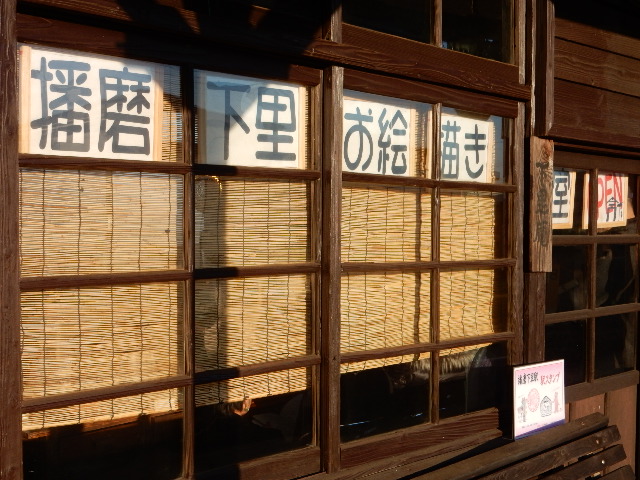 播磨下里お絵描き
室
OPEN
播磨下里駅
駅スタンプ